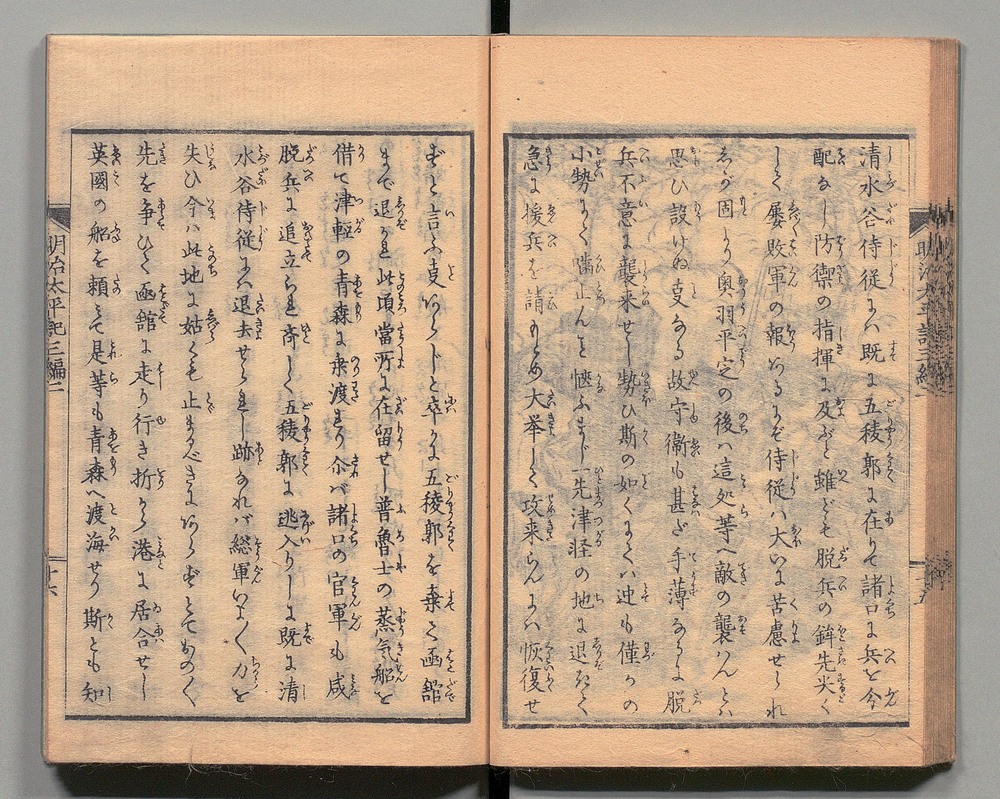 清水谷侍従にハ既に五稜郭に在りて諸口に兵を分
配なし防禦の指揮に及ぶと雖ども脱兵の鉾先尖く
しく屡敗軍の報あるにぞ侍従ハ大いに苦慮せられ
るが固より奥羽平定の後ハ這処等へ敵の襲ハんとハ
思ひ設けぬ叓なる故守衛も甚だ手薄なるに脱
兵不意に襲来せし勢ひ斯の如くにてハ迚も僅かの
小勢にて噛止んと愜ふまじ一先津軽の地に退きて
急に援兵を請もとめ大挙して攻来らんにハ恢復せ
ずと言ふ叓あらじと卒に五稜郭を棄て函館
まで退かれ此頃當所に在留せし普魯士の蒸気船を
借て津軽の青森に乗渡まり尒バ諸口の官軍も咸
脱兵に追立られ斉しく五稜郭に逃入りしに既に清
水谷侍従にハ退去せられし跡なれバ総軍いよく力を
失ひ今ハ此地に姑くも止まるべきにあらずとておのく
先を争ひて函館に走り行き折から港に居合せし
英國の船を頼ミて是等も青森へ渡海せり斯とも知
明治太平記三編二
十六